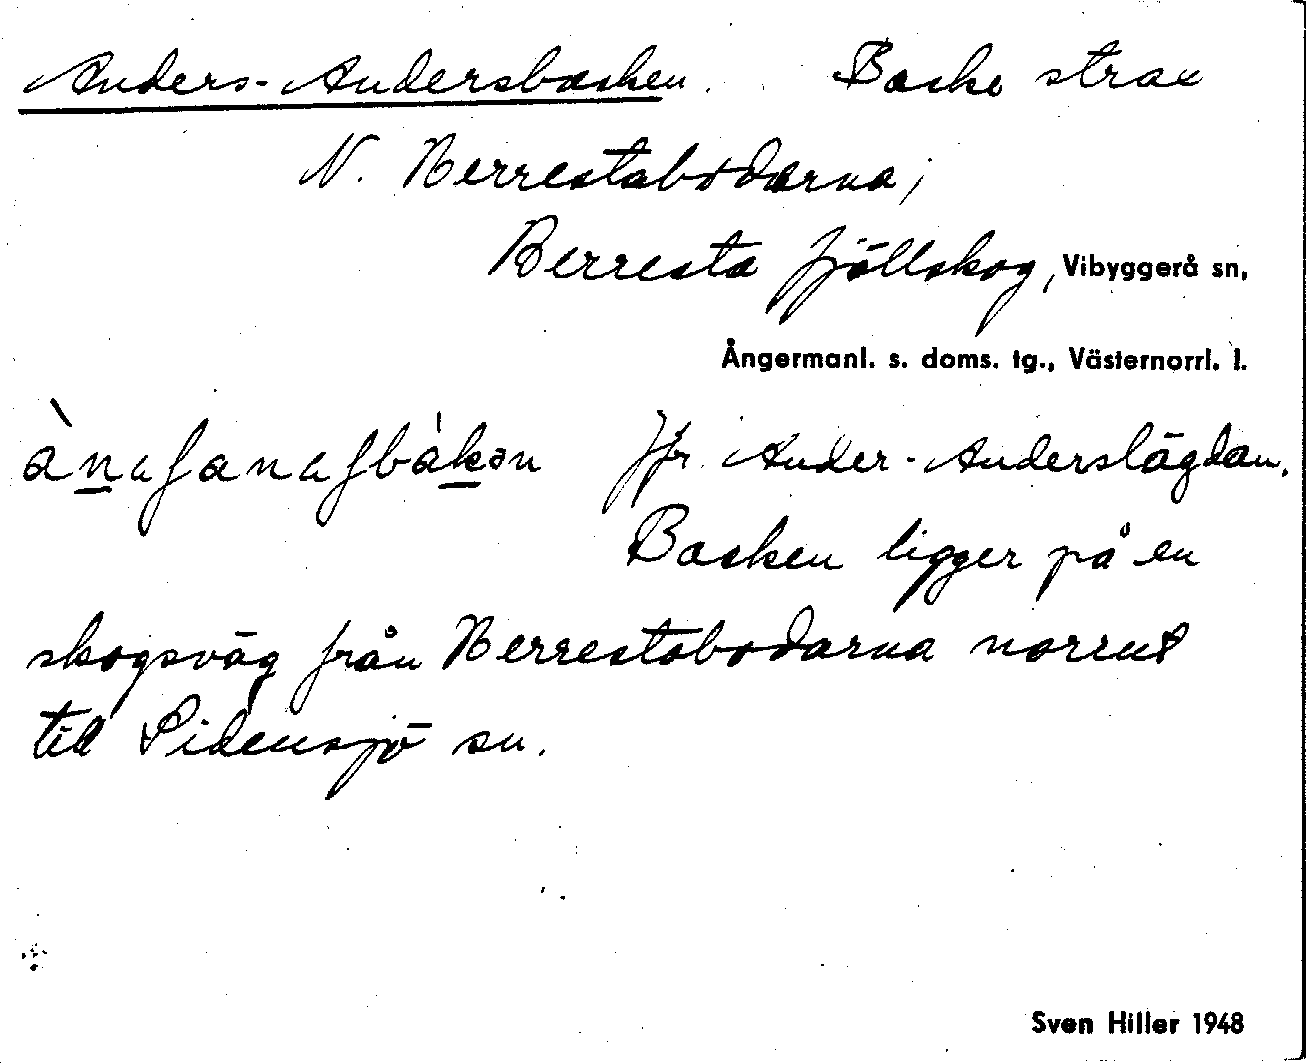 Anders-Andersbacken. Backe strax
N. Berrestabodarna,
Berresta fjällskog, Vibyggerå sn,
Ångermanl. s. doms. tg., Västernorrl. l.
Jfr. Ander-Anderslägdan.
Backen ligger på en
skogsväg från Berrestabodarna norrut
till Sidensjö sn.
Sven Hiller 1948